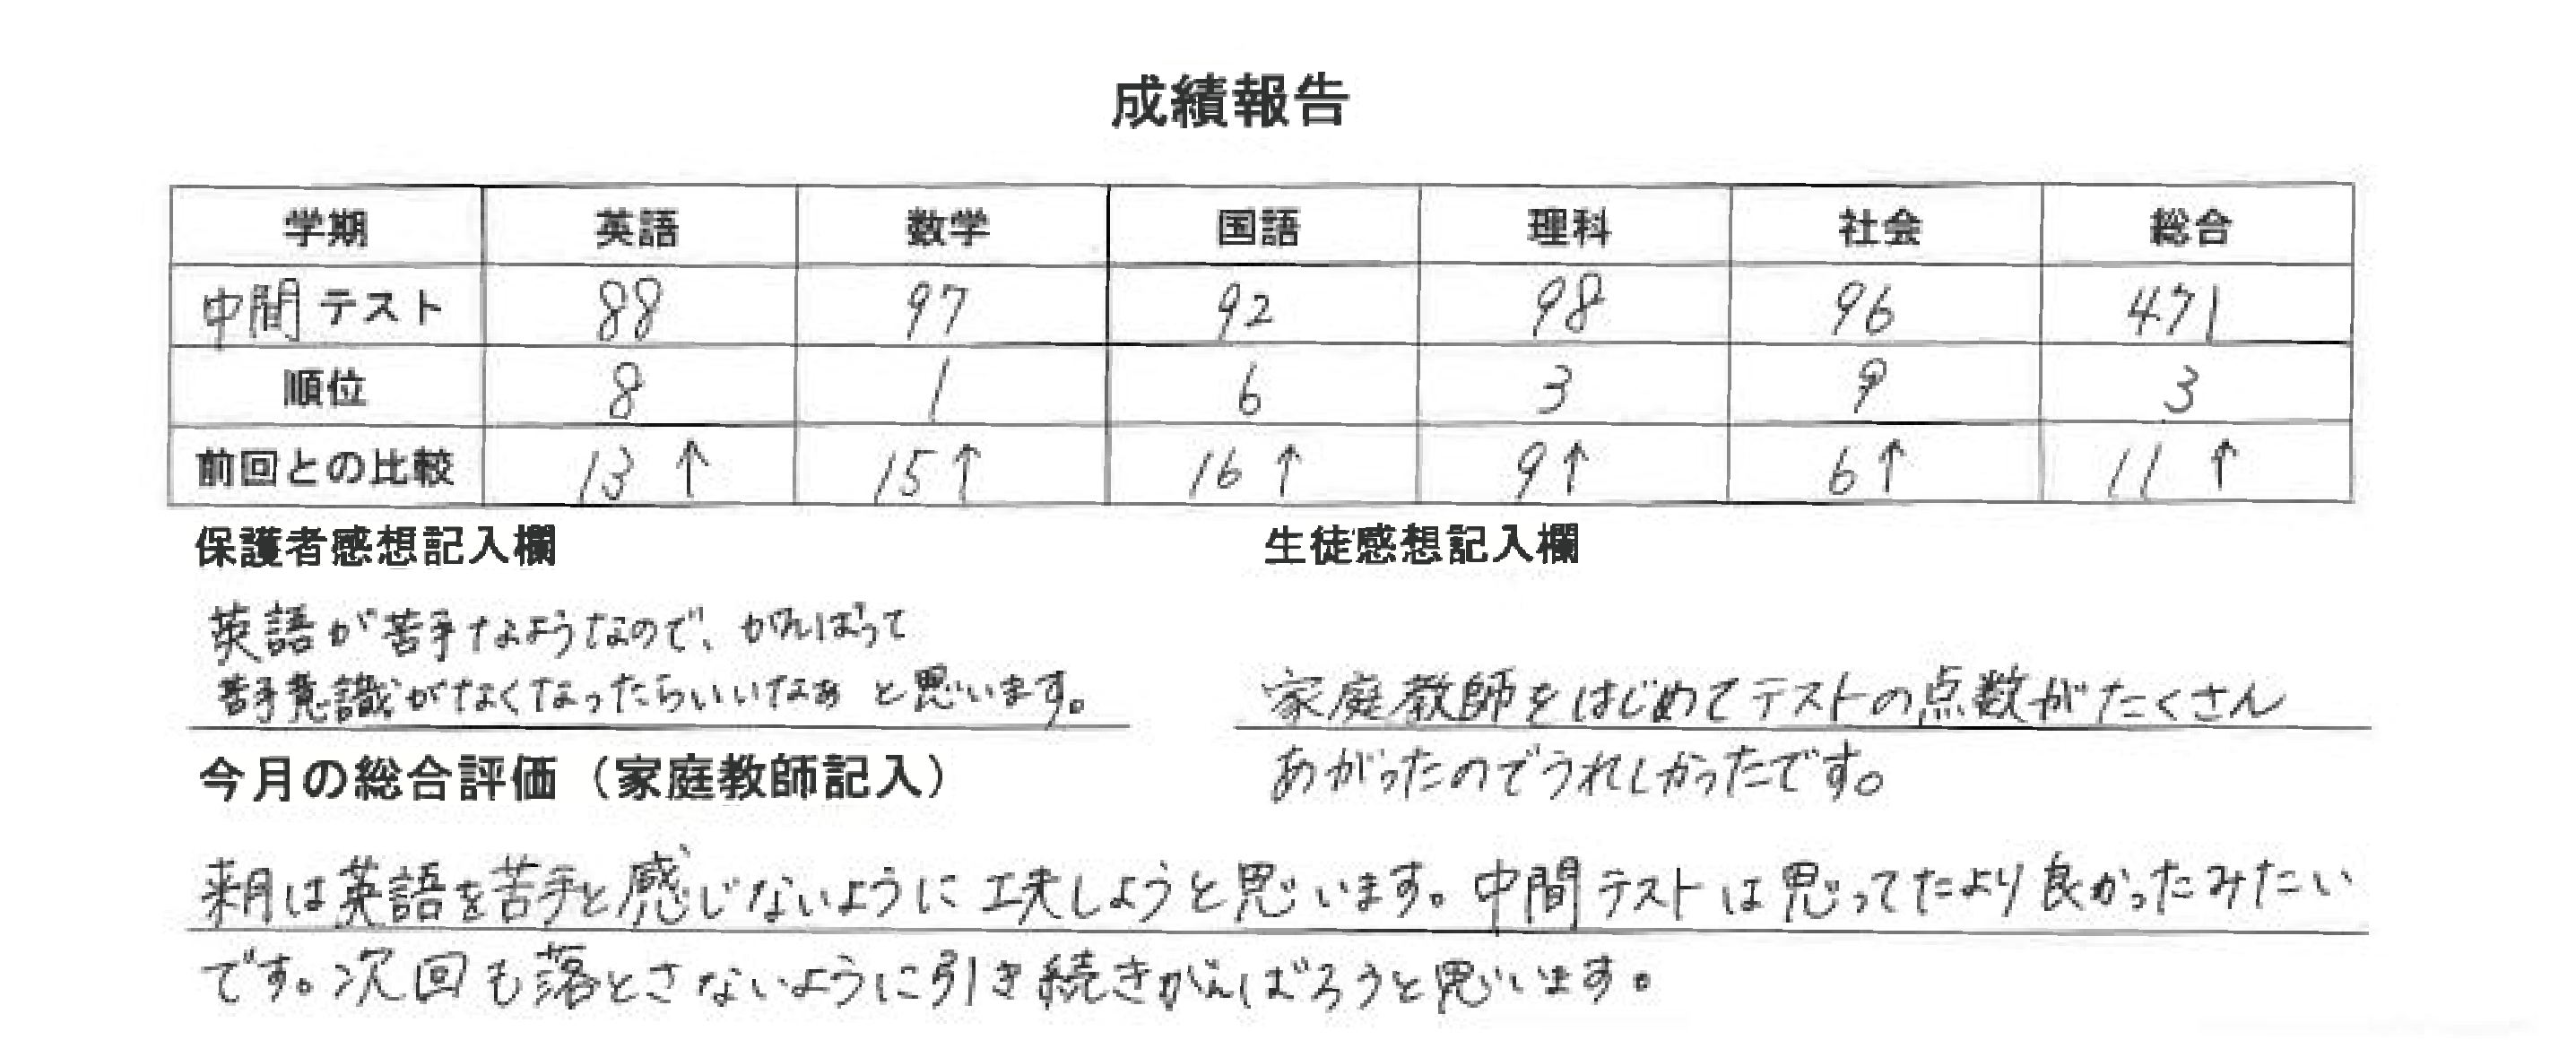 成績報告
学期 英語 数学 国語 理科 社会 総合
中間テスト 88 97 92 98 96 471
順位 8 1 6 3 9 3
前回との比較 13↑ 15↑ 16↑ 9↑ 6↑ 11↑
保護者感想記入欄
英語が苦手なようなので、がんばって
苦手意識がなくなったらいいなぁと思います。
生徒感想記入欄
家庭教師をはじめてテストの点数がたくさん
あがったのでうれしかったです。
今月の総合評価（家庭教師記入）
来月は英語を苦手と感じないように工夫しようと思います。中間テストは思ってたより良かったみたい
です。次回も落とさないように引き続きがんばろうと思います。